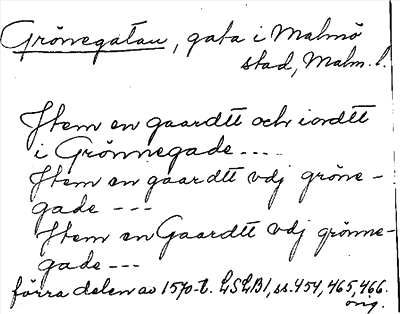 Grönegatan, gata i Malmö
stad, Malm. l.
Item en gaardtt och iordtt
i Grönnegade....
Item en gaardtt vdj gröne-
gade ---
Item en Gaardtt vdj grönne-
gade ---
förra delen av 1570-t. LSLB1, ss. 454, 465, 466.
orig.